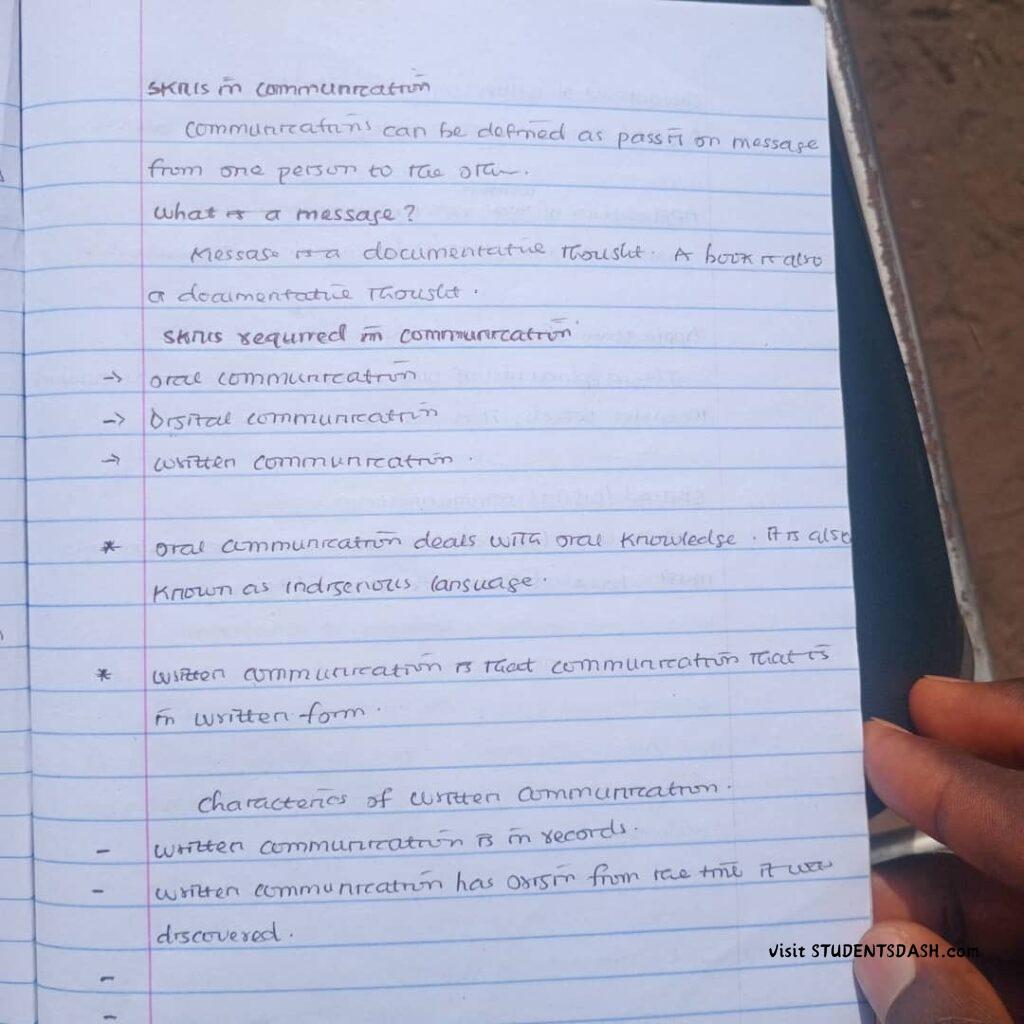 Skills in communication
Communications can be defined as pass it on message
from one person to the other.
What is a message?
Message is a documentative thought. A book is also
a documentative thought.
Skills required in communication
→ oral communication
→ Digital communication
→ written communication.
* oral communication deals with oral knowledge. It is also
known as indigenous language.
* written communication is that communication that is
in written form.
Characterics of written communication.
- written communication is in records.
- written communication has origin from the time it was
discovered.
-
-
Visit STUDENTSDASH.com